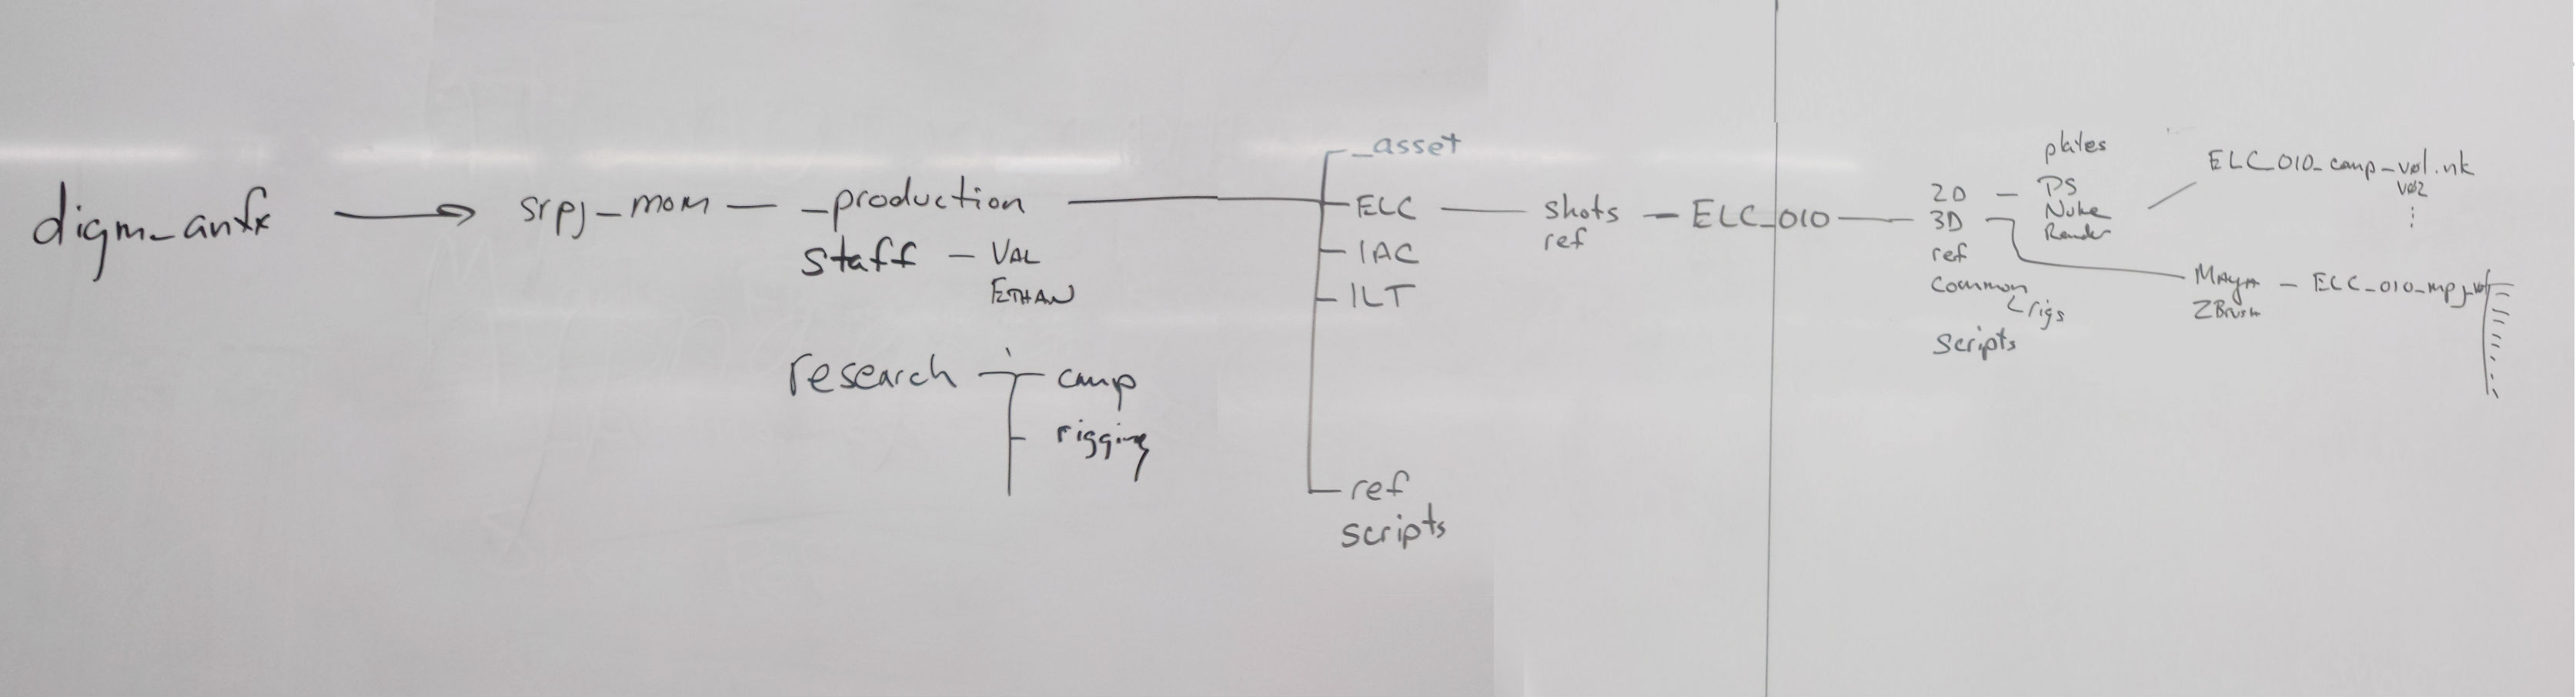 digm_anfx
srpj_mom
_production
staff
VAL
ETHAN
research
comp
rigging
_asset
ELC
IAC
ILT
ref
scripts
shots
ref
ELC_010
2D
3D
ref
Common
rigs
scripts
plates
PS
Nuke
Render
ELC_010_comp_v01.nk
v02
MAYA
ZBrush